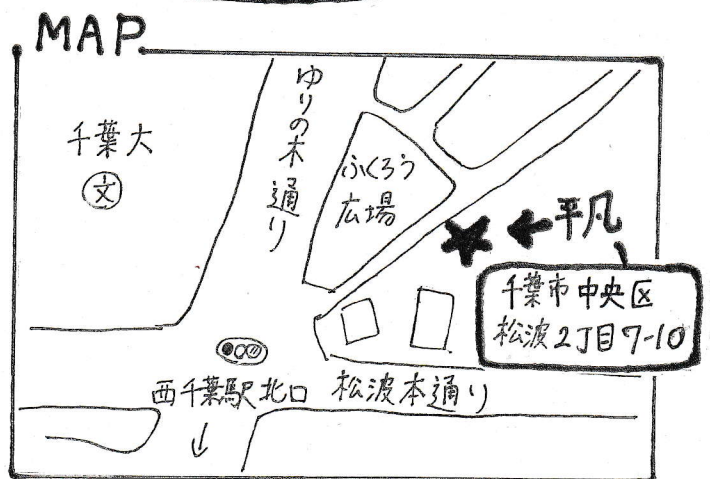 MAP
千葉大
文
ゆりの木通り
ふくろう
広場
平凡
千葉市中央区
松波2丁目7-10
西千葉駅北口
松波本通り